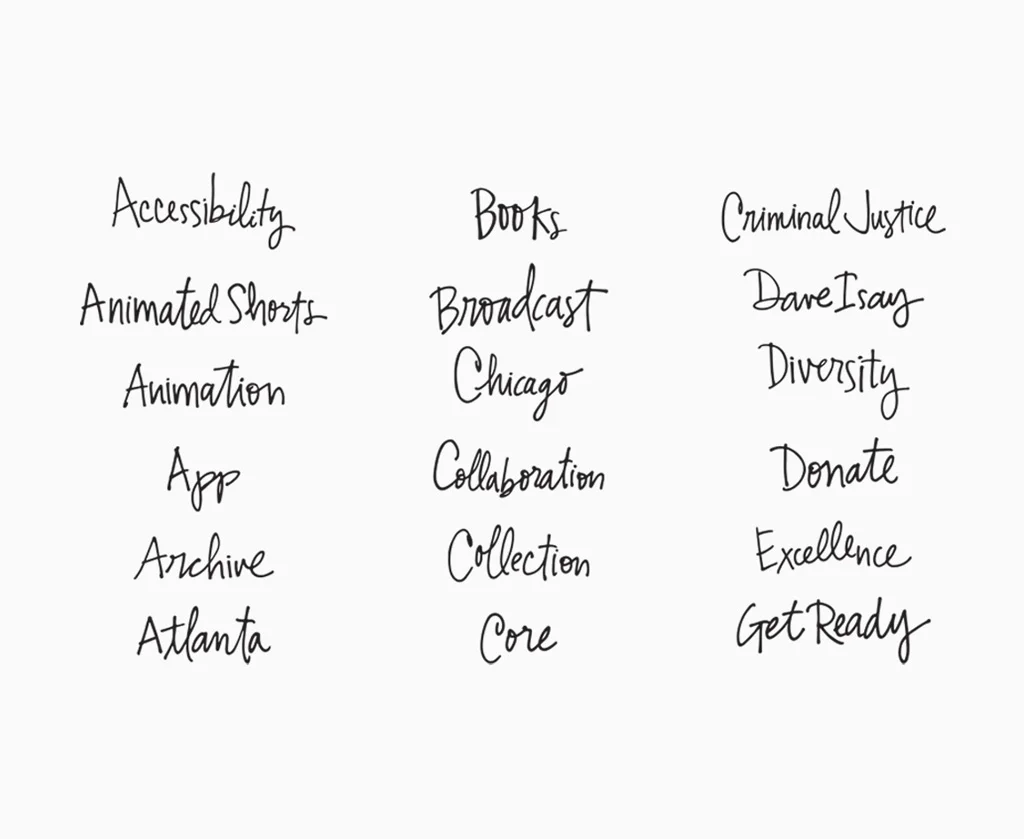 Accessibility
Animated Shorts
Animation
App
Archive
Atlanta
Books
Broadcast
Chicago
Collaboration
Collection
Core
Criminal Justice
Dave Isay
Diversity
Donate
Excellence
Get Ready